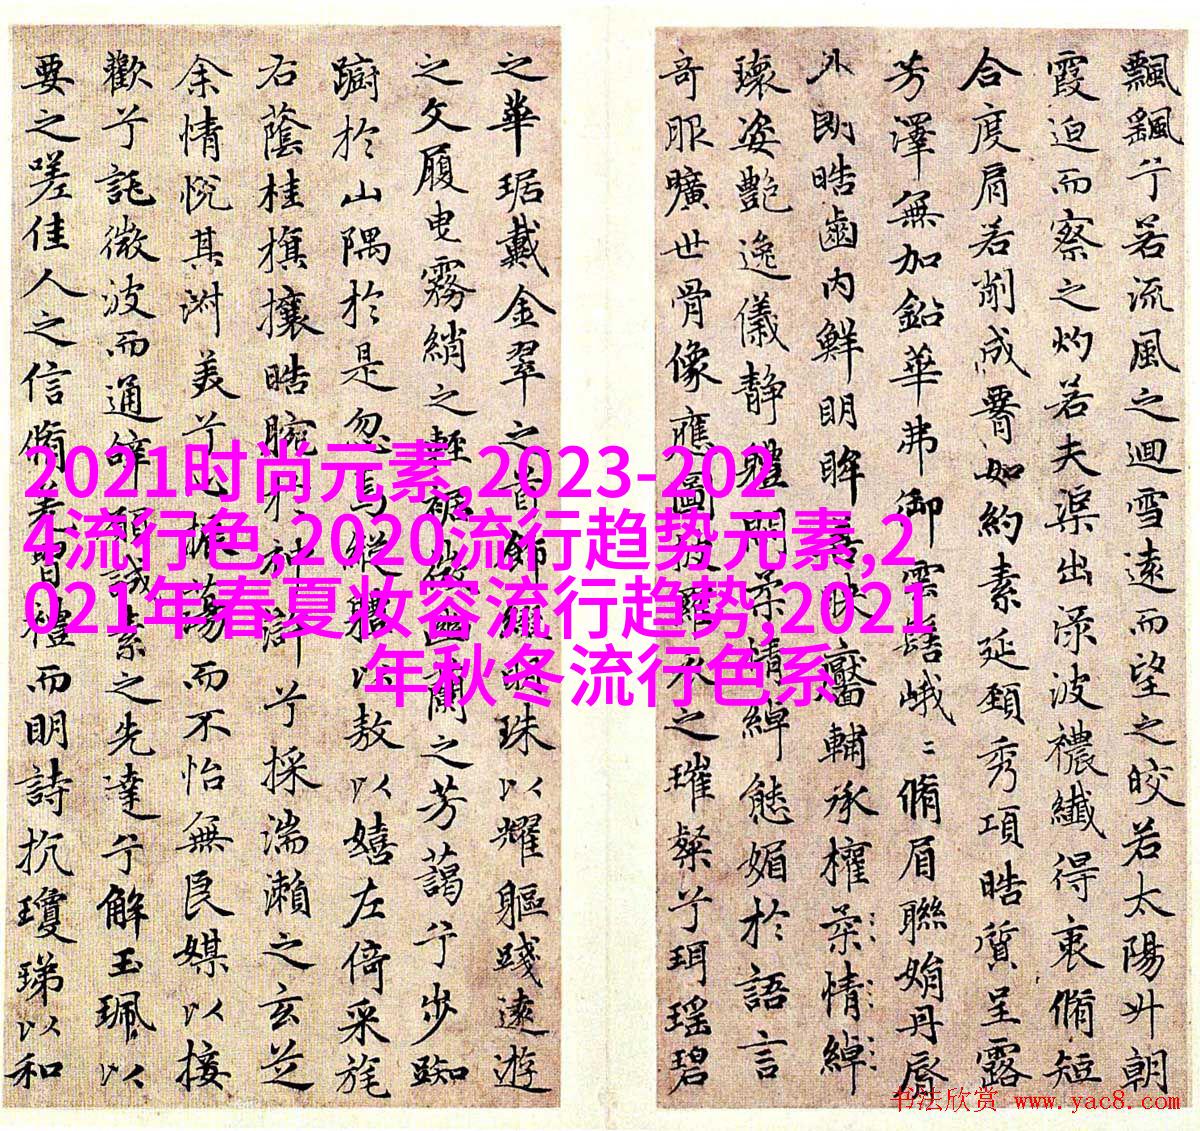 飄飖兮若流風之迴雪遠而望之皎若太陽升朝
霞迫而察之灼若夫渠出渌波襛纖得衷脩短
合度肩若削成腰如約素延頸秀項皓質呈露
芳澤無加鉛華弗御雲髻峨〻脩眉聯娟丹脣
外朗皓齒內鮮明眸善睞靨輔承權柔情綽
瓌姿艷逸儀静體閑柔情綽態媚於語言
奇服曠世骨像應圖披羅衣之璀粲兮珥瑶碧
之華琚戴金翠之首飾綴明珠以耀軀踐遠遊
之文履曳霧綃之輕裾微幽蘭之芳藹兮步踟
蹰於山隅於是忽焉縱體以敖以嬉左倚采旄
右蔭桂旗攘皓腕於神滸兮採湍瀨之玄芝
余情悅其淑美兮心振蕩而不怡無良媒以接
歡兮託微波而通辭願誠素之先達兮解玉珮以
要之嗟佳人之信脩羌習禮而明詩抗瓊珶以和
2021时尚元素,2023-202
4流行色,2020流行趋势元素,2
021年春夏妆容流行趋势,2021
年秋冬流行色系
书法欣赏 www.yac8.com